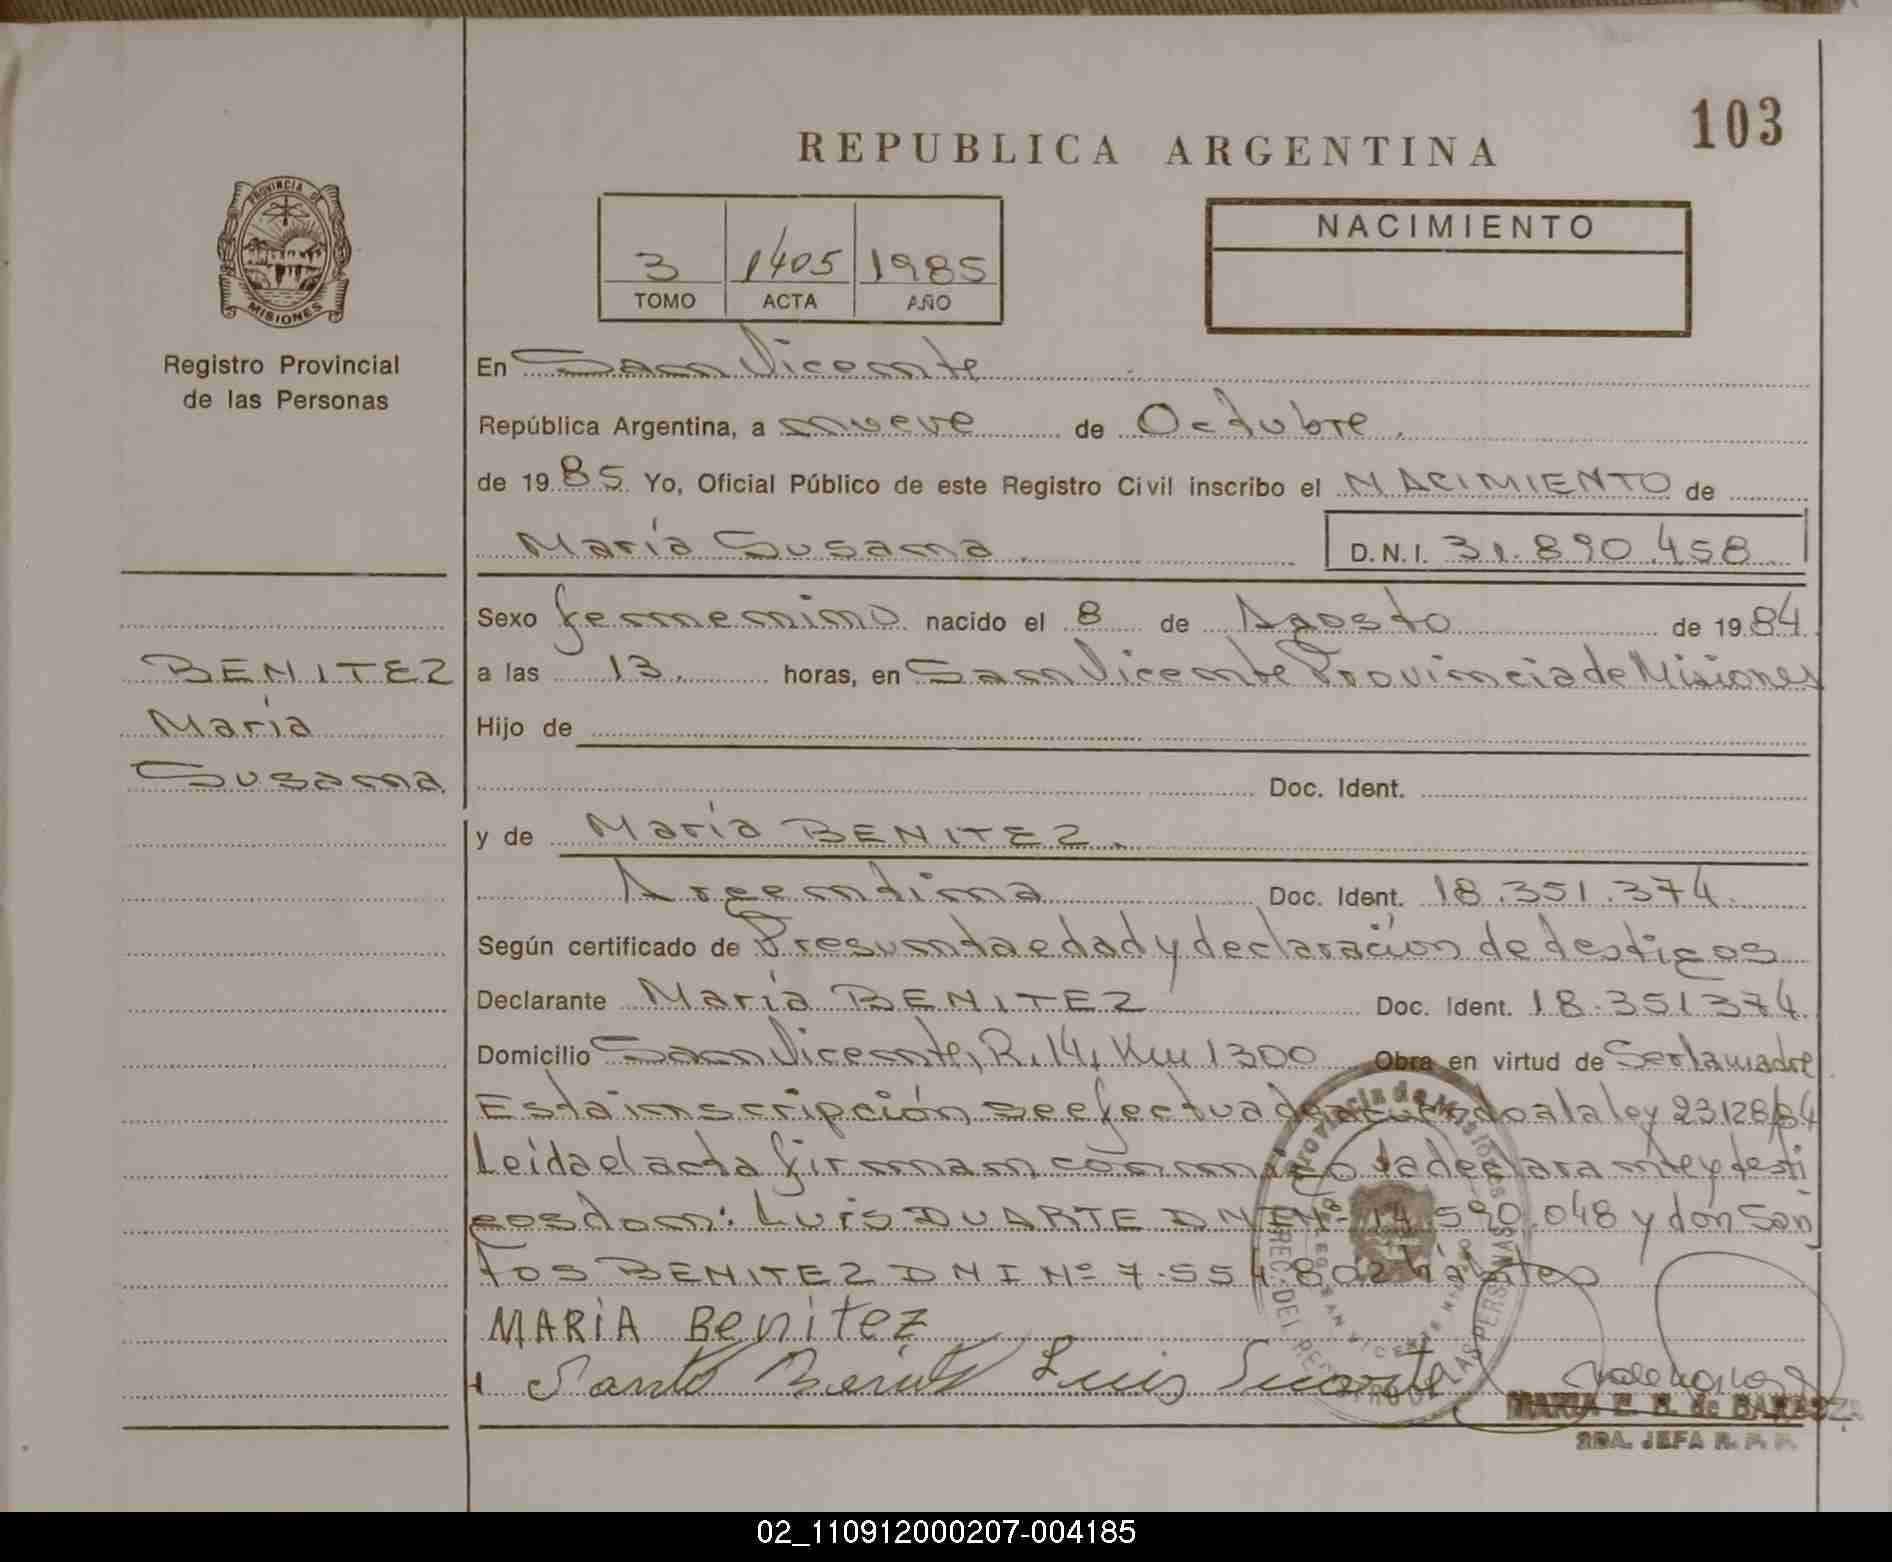 103
REPUBLICA ARGENTINA
PROVINCIA DE
MISIONES
3 1405 1985
TOMO ACTA AÑO
NACIMIENTO
Registro Provincial
de las Personas
En San Vicente
República Argentina, a nueve de Octubre.
de 1985 Yo, Oficial Público de este Registro Civil inscribo el NACIMIENTO de
María Susana.
D.N.I. 31.890.458
Sexo femenino nacido el 8 de Agosto de 1984.
BENITEZ
María
Susana.
a las 13. horas, en San Vicente Provincia de Misiones
Hijo de
Doc. Ident.
y de María BENITEZ.
Argentina Doc. Ident. 18.351.374.
Según certificado de Presunta edad y declaración de testigos
Declarante María BENITEZ Doc. Ident. 18.351374.
Domicilio San Vicente, R. 14, Km 1300 Obra en virtud de Ser la madre
Esta inscripción se efectua de acuerdo a la ley 23128/84
Leída el acta firman conmigo la declarante y testi
gos don: Luis DUARTE DNI Nº 14.590.048 y don San
tos BENITEZ DNI Nº 7.554.802 hábiles
MARIA Benitez
Santo Benitez Luis Duarte
Provincia de Misiones
SAN VICENTE
MARIA E. B. de
2DA. JEFA R. P. P.
02_110912000207-004185